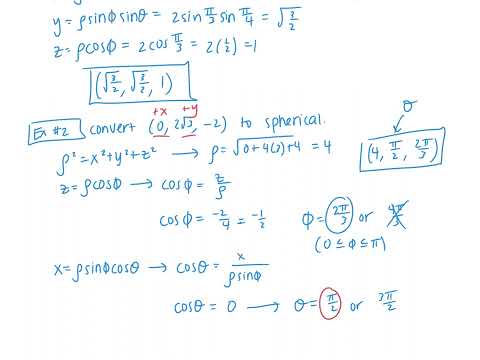 y = ρsinφsinθ = 2sin π/3 sin π/4 = √(3/2)
z = ρcosφ = 2cos π/3 = 2(1/2) = 1
(√(3/2), √(3/2), 1)
+x +y
Ex #2 convert (0, 2√3, -2) to spherical.
θ
ρ² = x²+y²+z² → ρ = √(0+4(3)+4) = 4
(4, π/2, 2π/3)
z = ρcosφ → cosφ = z/ρ
cosφ = -2/4 = -1/2 φ = 2π/3 or 4π/3
(0 ≤ φ ≤ π)
x = ρsinφcosθ → cosθ = x/ρsinφ
cosθ = 0 → θ = π/2 or 3π/2